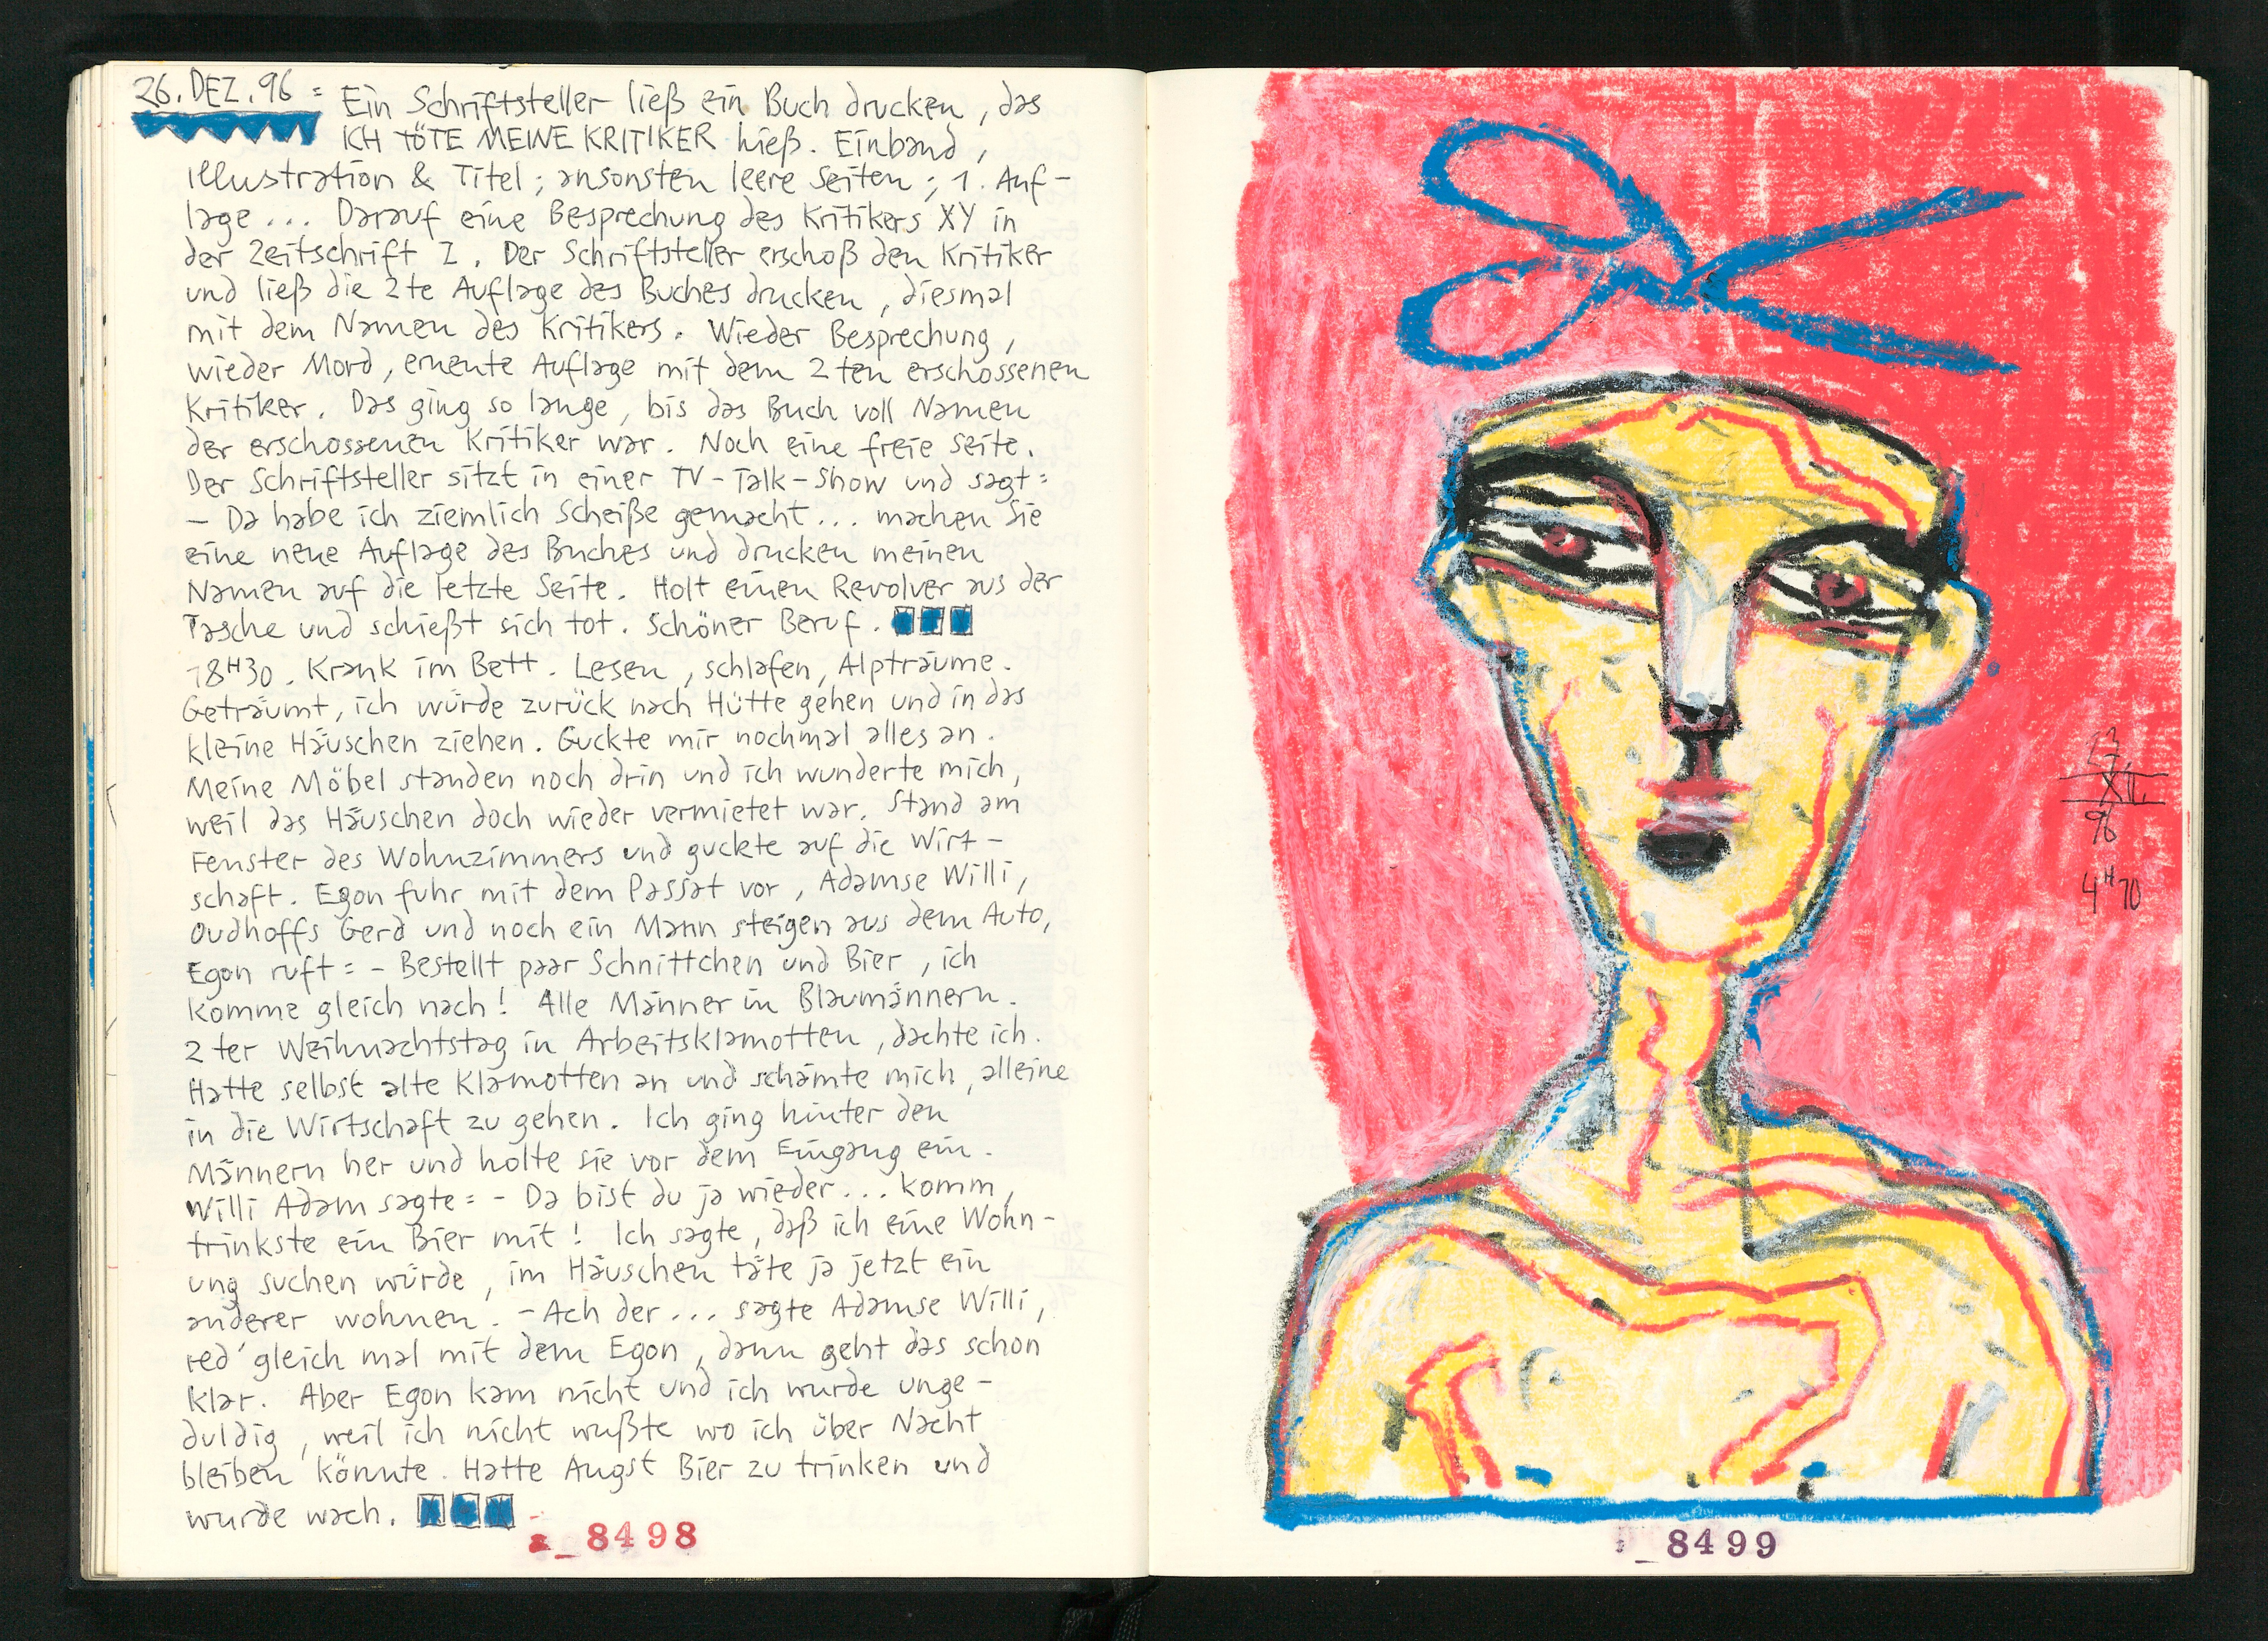 26. DEZ. 96 = Ein Schriftsteller ließ ein Buch drucken, das
ICH TÖTE MEINE KRITIKER hieß. Einband,
illustration & Titel; ansonsten leere Seiten; 1. Auf-
lage... Darauf eine Besprechung des Kritikers XY in
der Zeitschrift Z. Der Schriftsteller erschoß den Kritiker
und ließ die 2te Auflage des Buches drucken, diesmal
mit dem Namen des Kritikers. Wieder Besprechung,
wieder Mord, erneute Auflage mit dem 2ten erschossenen
Kritiker. Das ging so lange, bis das Buch voll Namen
der erschossenen Kritiker war. Noch eine freie Seite.
Der Schriftsteller sitzt in einer TV-Talk-Show und sagt =
- Da habe ich ziemlich Scheiße gemacht... machen Sie
eine neue Auflage des Buches und drucken meinen
Namen auf die letzte Seite. Holt einen Revolver aus der
Tasche und schießt sich tot. Schöner Beruf.
18H30. Krank im Bett. Lesen, schlafen, Alpträume.
Geträumt, ich würde zurück nach Hütte gehen und in das
kleine Häuschen ziehen. Guckte mir nochmal alles an.
Meine Möbel standen noch drin und ich wunderte mich,
weil das Häuschen doch wieder vermietet war. Stand am
Fenster des Wohnzimmers und guckte auf die Wirt-
schaft. Egon fuhr mit dem Passat vor, Adamse Willi,
Oudhoffs Gerd und noch ein Mann steigen aus dem Auto,
Egon ruft = - Bestellt paar Schnittchen und Bier, ich
komme gleich nach! Alle Männer in Blaumännern.
2ter Weihnachtstag in Arbeitsklamotten, dachte ich.
Hatte selbst alte Klamotten an und schämte mich, alleine
in die Wirtschaft zu gehen. Ich ging hinter den
Männern her und holte sie vor dem Eingang ein.
Willi Adam sagte = - Da bist du ja wieder... komm,
trinkste ein Bier mit! Ich sagte, daß ich eine Wohn-
ung suchen würde, im Häuschen täte ja jetzt ein
anderer wohnen. - Ach der... sagte Adamse Willi,
red' gleich mal mit dem Egon, dann geht das schon
klar. Aber Egon kam nicht und ich wurde unge-
duldig, weil ich nicht wußte wo ich über Nacht
bleiben könnte. Hatte Angst Bier zu trinken und
wurde wach.
8498
XII.
96
4H10
8499